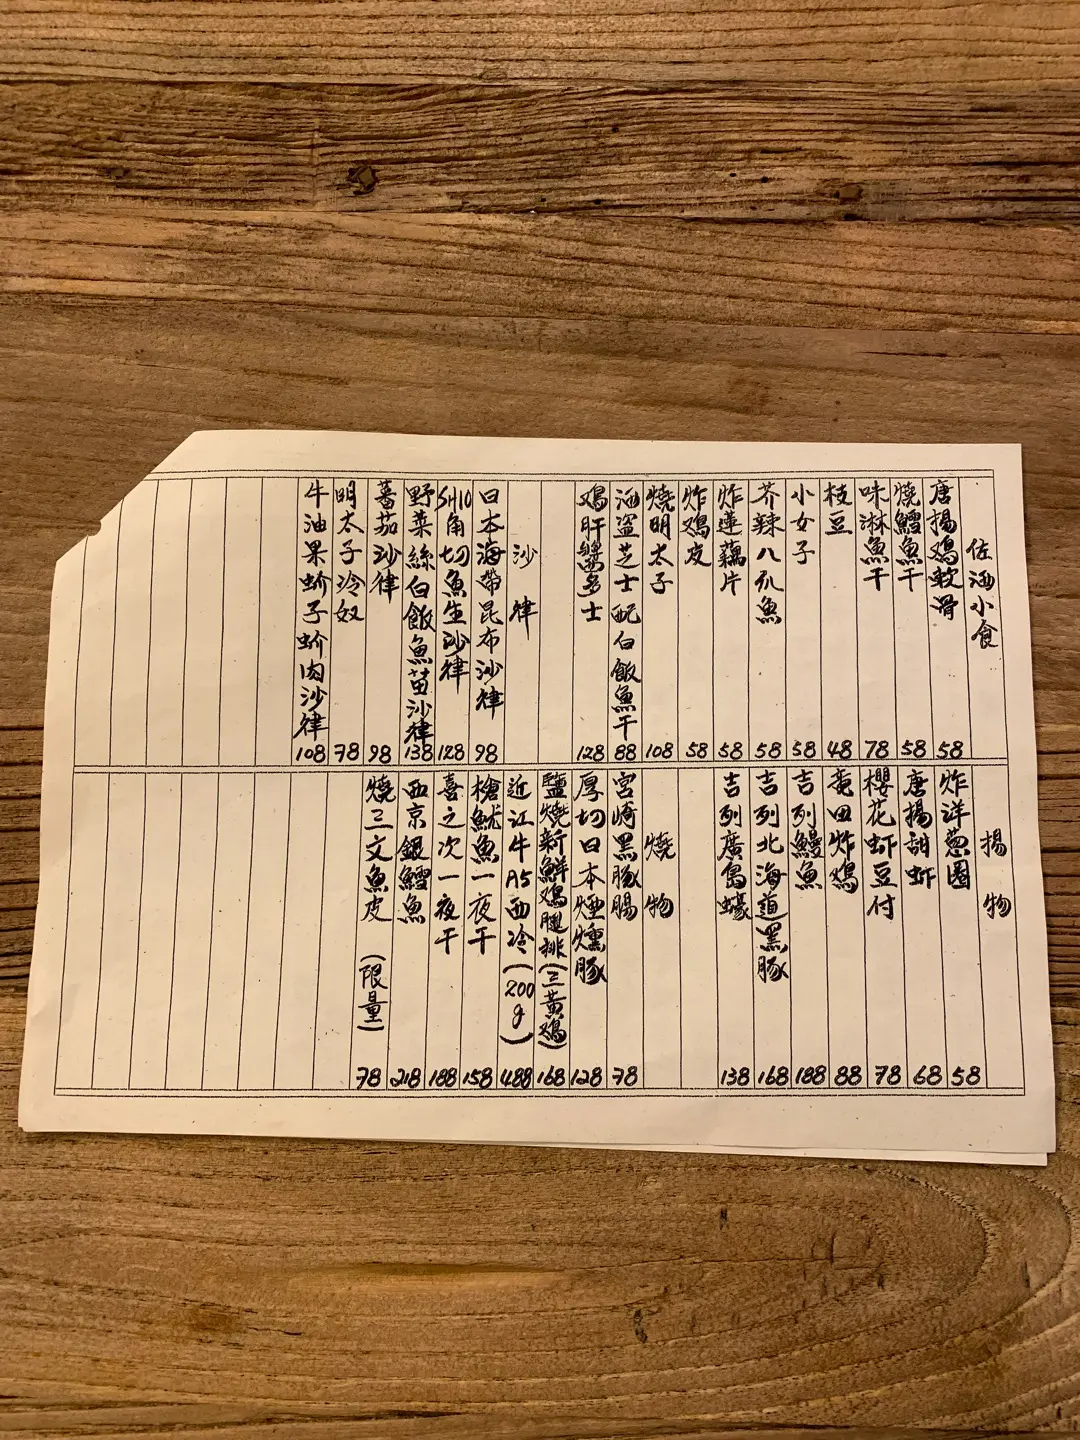 佐酒小食
唐揚鸡軟滑 58
燒鱈魚干 58
味淋魚干 78
枝豆 48
小女子 58
芥辣八爪魚 58
炸蓮藕片 58
炸鸡皮 58
燒明太子 108
酒盗芝士配白飯魚干 88
鸡肝醬多士 128
沙律
日本海帶昆布沙律 98
31110角切魚生沙律 128
野菜絲白飯魚苗沙律 138
蕃茄沙律 98
明太子冷奴 78
牛油果蚧子蚧肉沙律 108
揚物
炸洋葱圈 58
唐揚甜虾 68
櫻花虾豆付 78
竜田炸鸡 88
吉列鰻魚 188
吉列北海道黑豚 168
吉列廣島蠔 138
燒物
宮崎黑豚腸 78
厚切日本煙燻豚 128
鹽燒新鮮鸡腿排(三黃鸡) 168
近江牛A5西冷(200g) 488
槍魷魚一夜干 158
喜之次一夜干 188
西京銀鱈魚 218
燒三文魚皮(限量) 78